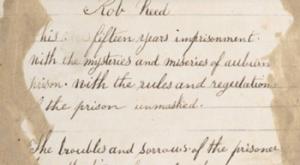 Rob Reed
his fifteen years imprisonment.
With the mysteries and miseries of auburn
prison. with the rules and regulations
of the prison unmasked.
The troubles and sorrows of the prisoner